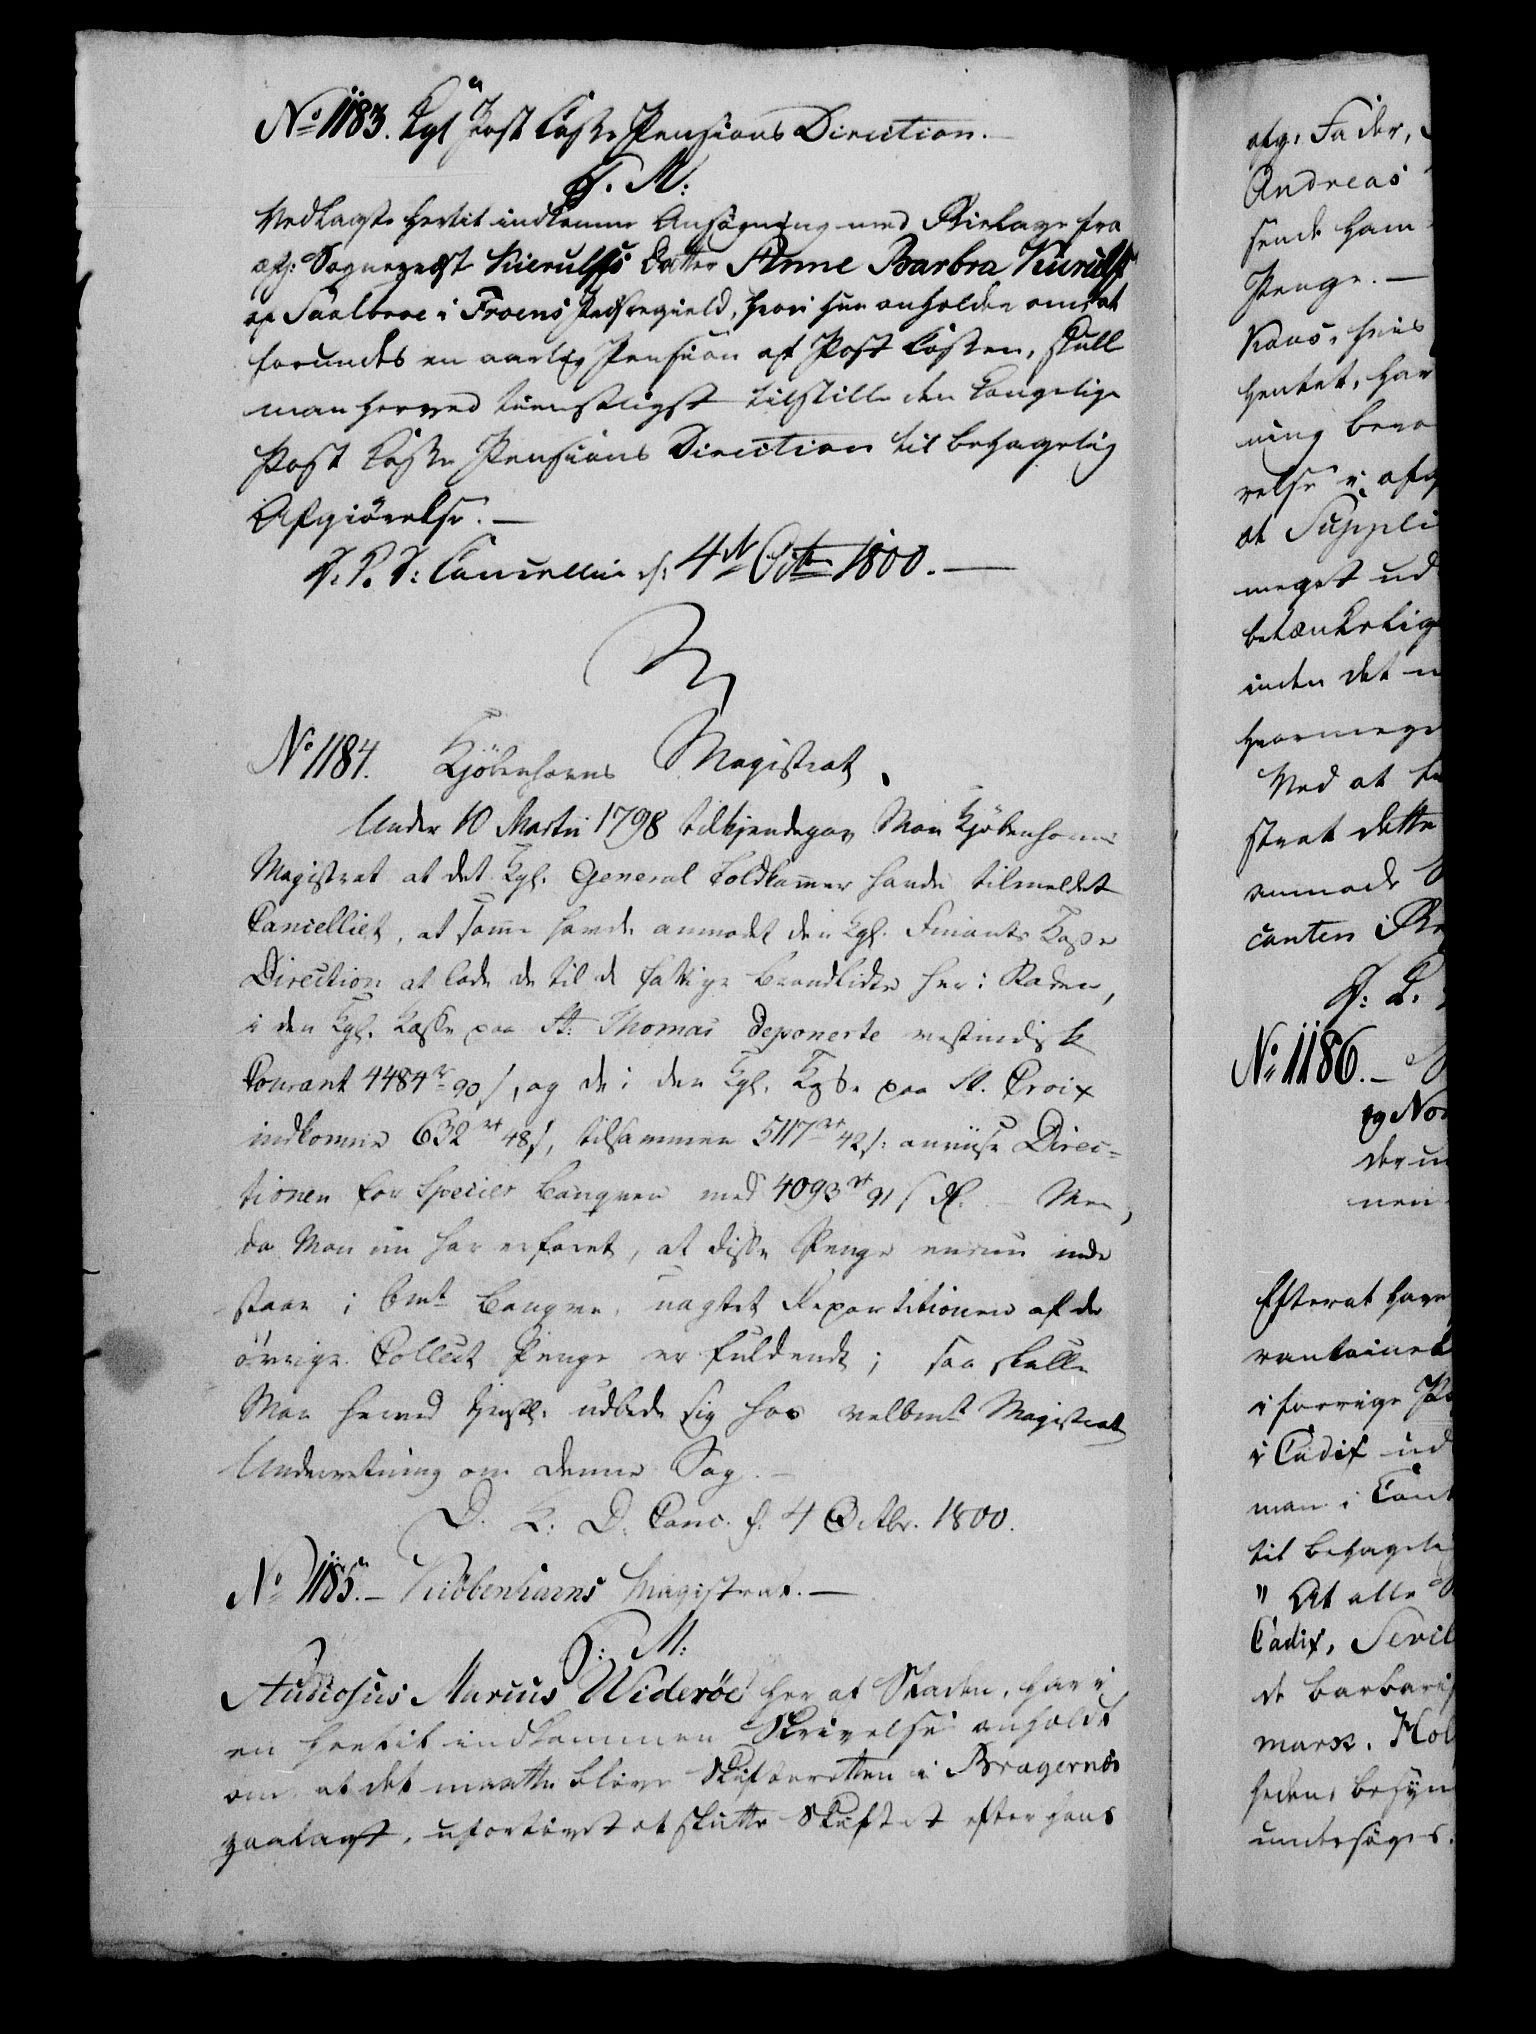 No 1183. Kgl. Post Casse Pensions Direction.
P. M:
Vedlagte hertil indkomne Ansøgning med Bielage fra
afg: Sognepræst Kierulfs Datter Anne Barbra Kierulf
af Saalberee i Froens Præstegield, hvori hun anholder om at
forundes en aarlig Pension af Post Cassen, skulle
man herved tienstligst tilstille den Kongelige
Post Casse Pensions Direction til behagelig
Afgiørelse. —
D. D. C: Cancellie d: 4de Octbr 1800. —
No 1184. Kjøbenhavns Magistrat.
Under 10 Martii 1798 tilkjendegav Man Kjøbenhavns
Magistrat at det Kgl. General Toldkamer havde tilmeldet
Cancelliet, at samme havde anmodet den Kgl. Finants Kasse
Direction at lade de til de fattige Brandlidte her i Staden,
i den Kgl. Kasse paa St: Thomas deponerte vestindisk
Courant 4484 rd 90 s, og de i den Kgl. Kasse paa St. Croix
indkomne 632 rd 48 s, tilsammen 5117 rd 42 s: anviise Direc-
tionen for Species Banqven med 4093 rd 91 s DC. — Men,
da Man nu har erfaret, at disse Penge endnu inde
staae i bemt Banqve, uagtet Repartitionen af de
øvrige Collect Penge er fuldendt; saa skulle
Man herved tienstl. udbede sig hos velbemt Magistrat
Underretning om denne Sag. —
D. K: D. Canc. d. 4 Octbr. 1800.
No 1185. — Kiøbenhavns Magistrat. —
P: M:
Studiosus Marcus Widerøe her af Staden, har i
en hertil indkommen Skrivelse anholdt
om at det maatte blive Skifteretten i Bragernæs
paalagt, ufortøvet at slutte Skiftet efter hans
afg. Fader,
Andreas
sende ham
Penge. —
Kaas, hvis
hentet, har
ning beva
relse i afg
at Suppli
meget ud
betænkelig
inden det
hvormege
Ved at
strat dette
anmode
canten i
D: D.
No 1186. —
og Nor
der
nen
Efterat have
rantainen
i forrige
i Cadix ud
man i Cant
til behagel
" At alle
Cadix, Sevil
de barbari
mark, Hol
heden, besyn
undersøges.